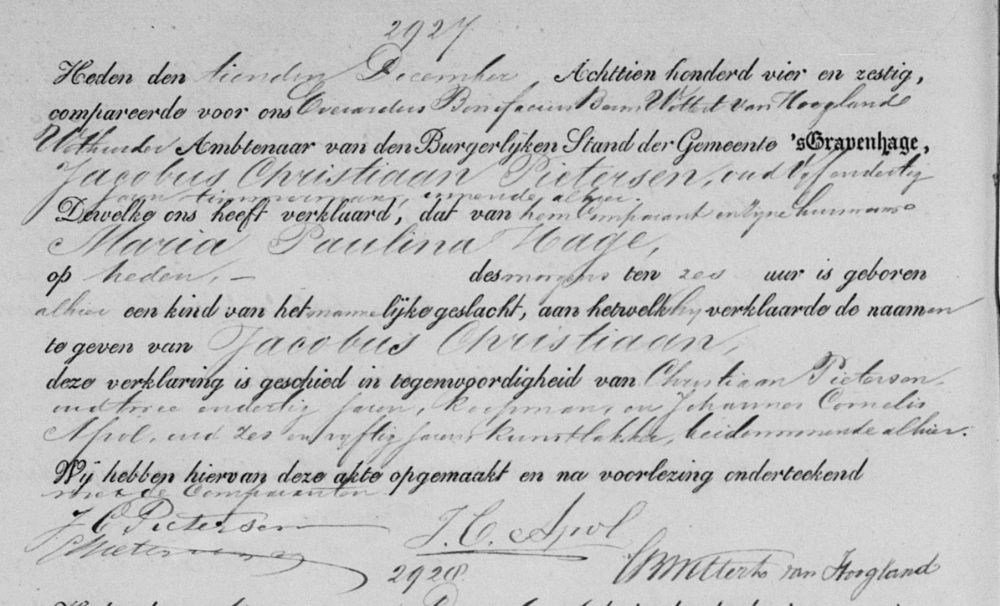 2927
Heden den tienden December, Achttien honderd vier en zestig,
compareerde voor ons Everardus Bonifacius Baron Wittert van Hoogland
Wethouder Ambtenaar van den Burgerlijken Stand der Gemeente 's Gravenhage,
Jacobus Christiaan Pietersen, oud vijf en dertig
jaren, timmerman, wonende alhier.
Dewelke ons heeft verklaard, dat van hem Comparant en zyne huisvrouw
Maria Paulina Hage,
op heden, – des morgens ten zes uur is geboren
alhier een kind van het mannelijke geslacht, aan hetwelk hy verklaarde de naamen
te geven van Jacobus Christiaan,
deze verklaring is geschied in tegenwoordigheid van Christiaan Pietersen,
oud twee en dertig jaren, koopman, en Johannes Cornelis
Apol, oud zes en vyftig jaren kunstlakker, beide wonende alhier.
Wij hebben hiervan deze akte opgemaakt en na voorlezing onderteekend
met de Comparanten.
J C Pietersen
J. C. Apol
C Pietersen
Wittert van Hoogland
2928
Heden den